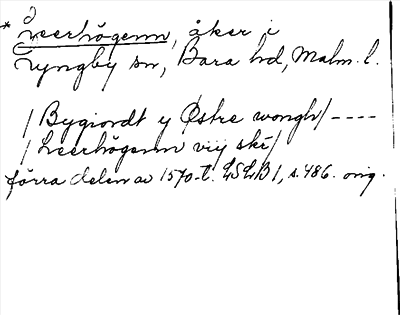 * Leerhögenn, åker i
Lyngby sn, Bara hd, Malm. l.
/ Bygiordt y Østre wongh/ ----
/ Leerhögenn viij ske/
förra delen av 1570-t. LSLB 1, s. 486. orig.